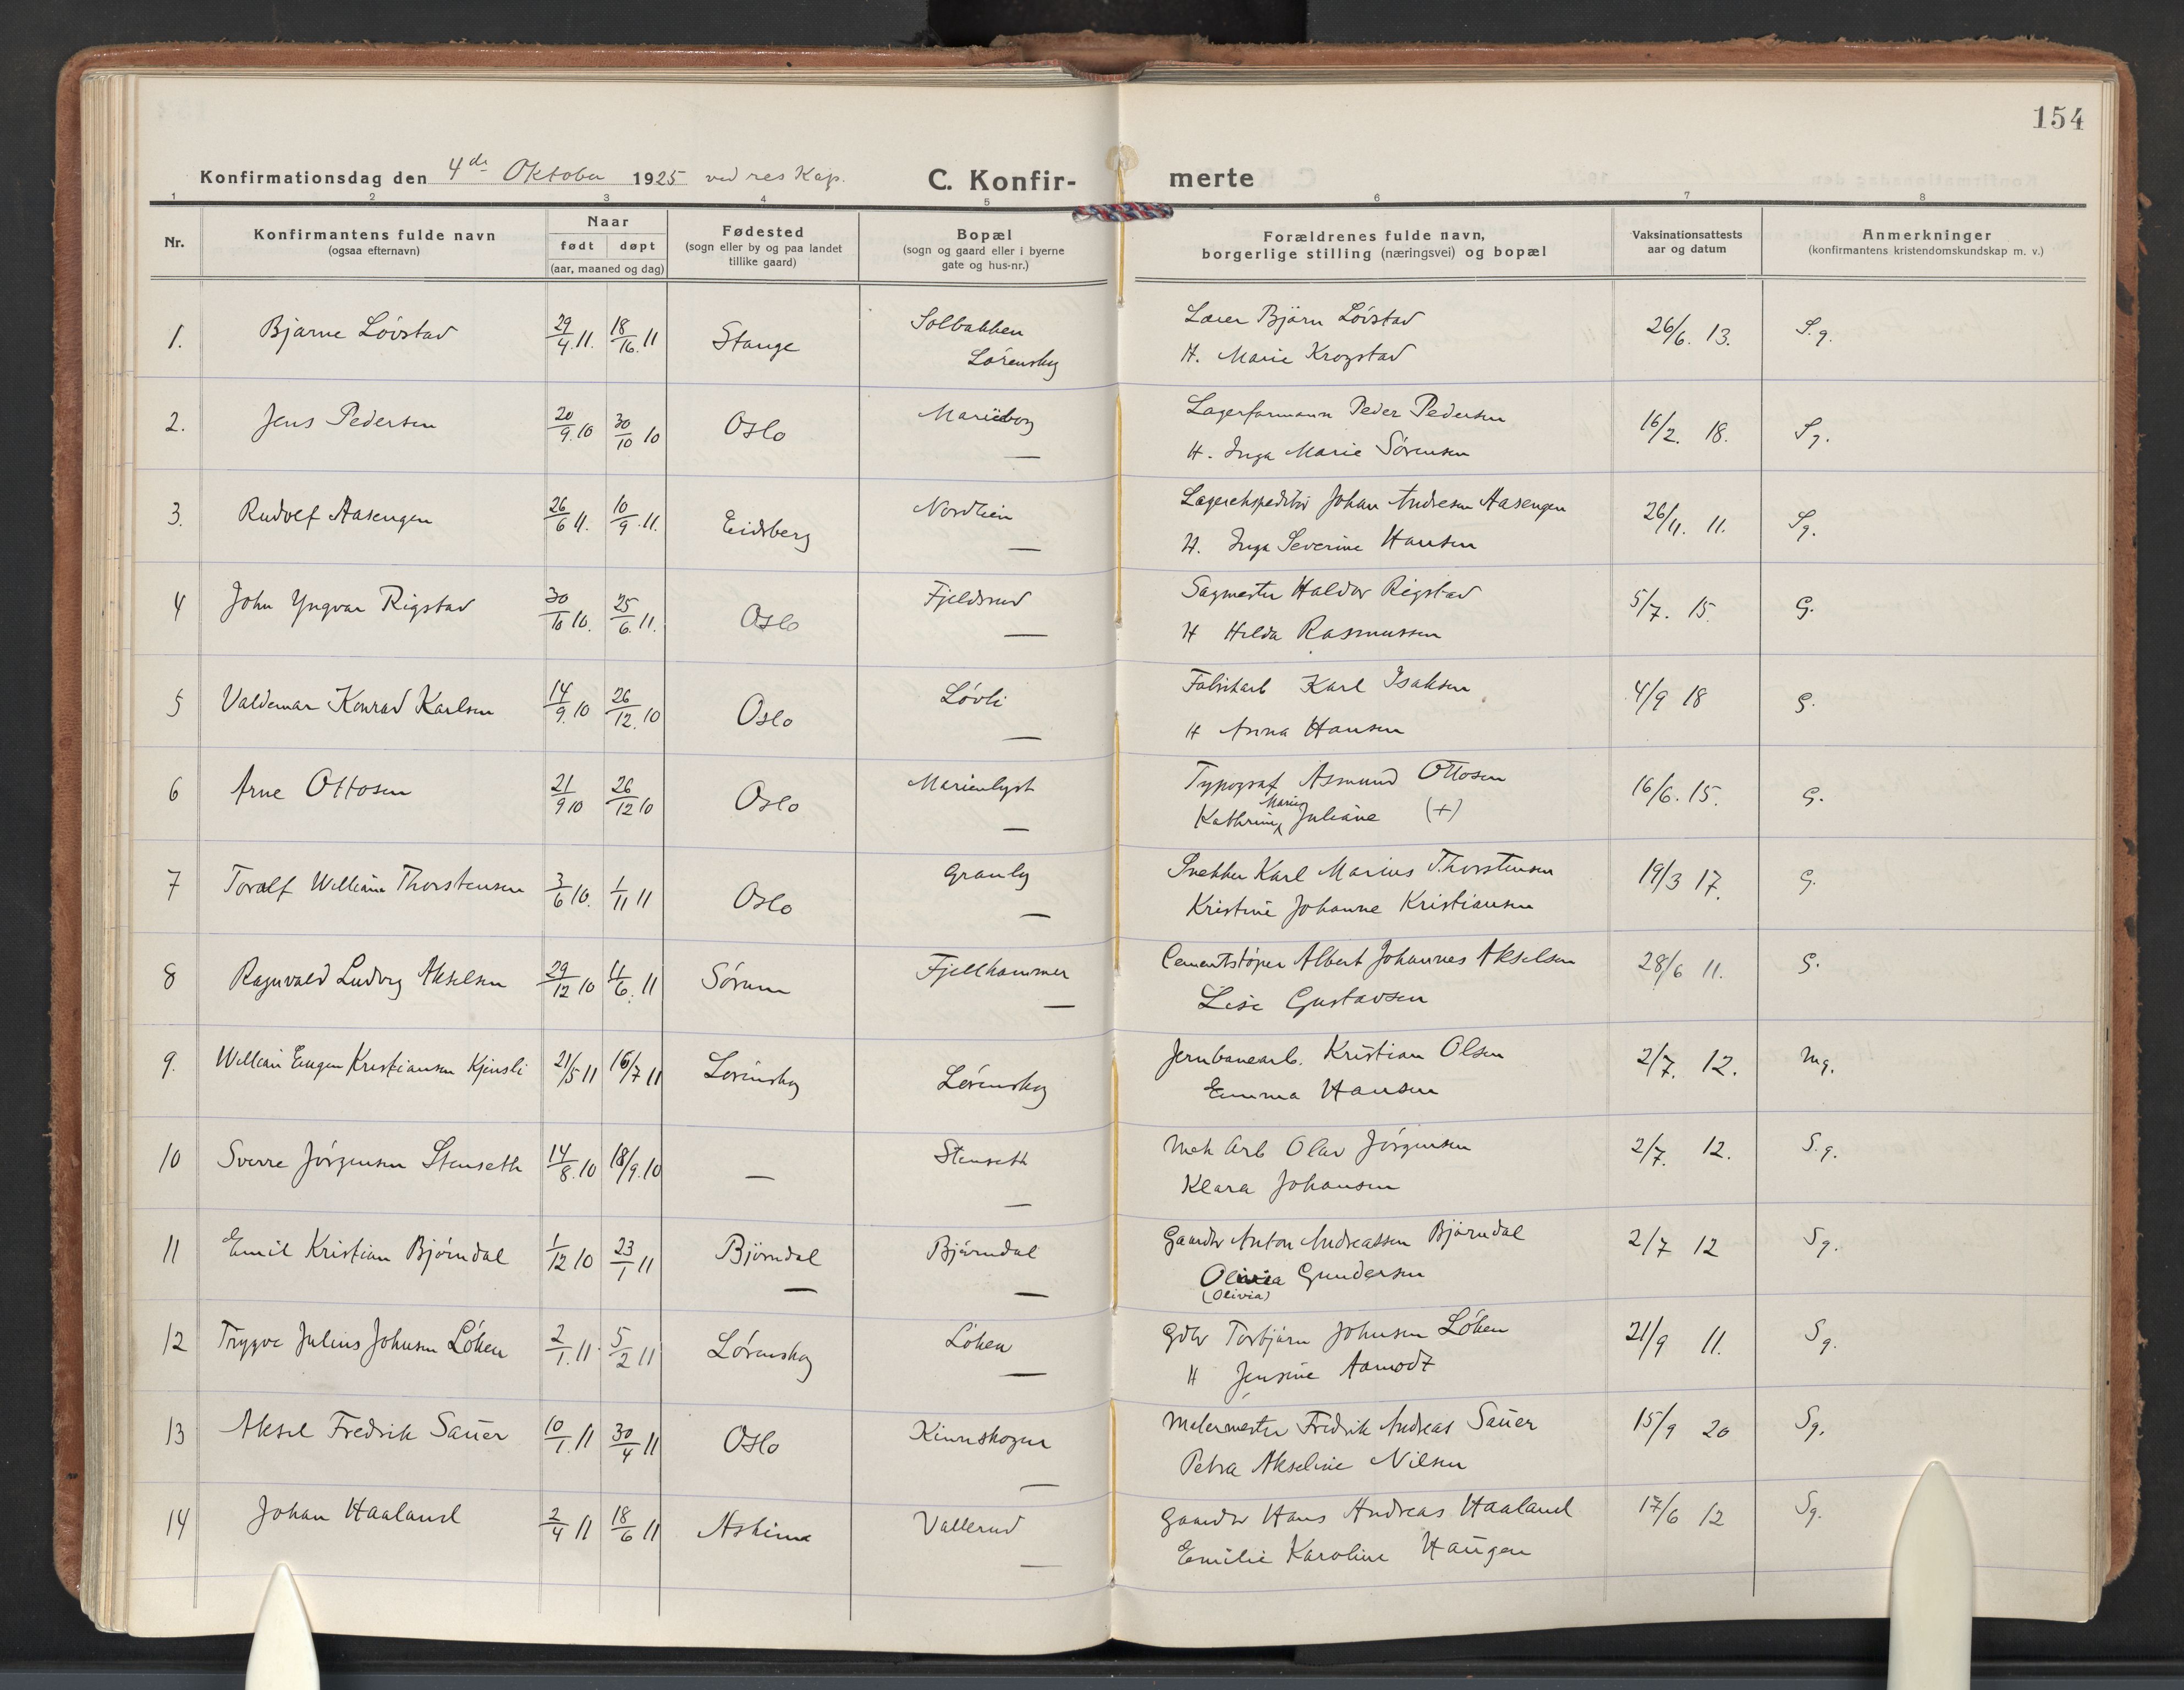 154
Konfirmationsdag den 4de Oktober 1925 ved res Kap. C. Konfir- merte
1 2 3 4 5 6 7 8
Nr. Konfirmantens fulde navn (ogsaa efternavn) Naar født døpt (aar, maaned og dag) Fødested (sogn eller by og paa landet tillike gaard) Bopæl (sogn og gaard eller i byerne gate og hus-nr.) Forældrenes fulde navn, borgerlige stilling (næringsvei) og bopæl Vaksinationsattests aar og datum Anmerkninger (konfirmantens kristendomskundskap m. v.)
1. Bjarne Lövstad 29/4.11. 18/16.11 Stange Solbakken Lörenskog Lærer Björn Lövstad 26/6. 13. S.g.
H. Marie Krogstad
2. Jens Pedersen 20/9.10 30/10 10 Oslo Marieborg — Lagerformann Peder Pedersen 16/2. 18. Sg.
H. Inga Marie Sørensen
3. Rudolf Aasengen 26/6 11. 10/9.11. Eidsberg Nordheim — Lagerekspeditör Johan Andresen Aasengen 26/11. 11. Sg.
H. Inga Severine Hansen
4 John Yngvar Rigstad 30/10 10. 25/6. 11. Oslo Fjeldsrud — Sagmester Haldor Rigstad 5/7. 15. G.
H Hilda Rasmussen
5 Valdemar Konrad Karlsen 14/9.10 26/12.10 Oslo Lövli — Fabrikarb Karl Isaksen 4/9 18 G.
H Anna Hansen
6 Arne Ottosen 21/9 10 26/12 10 Oslo Marienlyst — Typograf Asmund Ottosen 16/6. 15. G.
Kathrine Marie Juliane (+)
7 Toralf William Thorstensen 3/6 10. 1/11 11 Oslo Granly — Snekker Karl Marius Thorstensen 19/3 17. G.
Kristine Johanne Kristiansen
8 Ragnvald Ludvig Akselsen 29/12 10 11/6. 11 Sörum Fjellhammer — Cementstöper Albert Johannes Akselsen 28/6 11. G.
Lise Gustavsen
9. William Eugen Kristiansen Kjensli 21/5 11 16/7 11 Lörenskog Lörenskog Jernbanearb. Kristian Olsen 2/7. 12. Mg.
Emma Hansen
10 Sverre Jörgensen Stenseth 14/8.10 18/9.10 — Stenseth — Mek Arb Olav Jörgensen 2/7. 12. S.g.
Klara Johansen
11 Emil Kristian Björndal 1/12 10 23/1 11 Björndal — Björndal — Gaardbr Anton Andreassen Björndal 2/7 12 Sg.
Olivia Gundersen
(Olivia)
12 Trygve Julius Johnsen Löken 2/1. 11 5/2 11 Lörenskog Löken — Gdbr Torbjörn Johnsen Löken 21/9 11. Sg.
H Jensine Aamodt
13 Aksel Fredrik Sauer 10/1. 11 30/4 11 Oslo Kinnskogen — Malermester Fredrik Andreas Sauer 15/9 20 Sg.
Petra Akseline Nilsen
14 Johan Haaland 2/4 11 18/6 11 Askim Vallerud — Gaardbr Hans Andreas Haaland 17/6 12 Sg.
Emilie Karoline Haugen